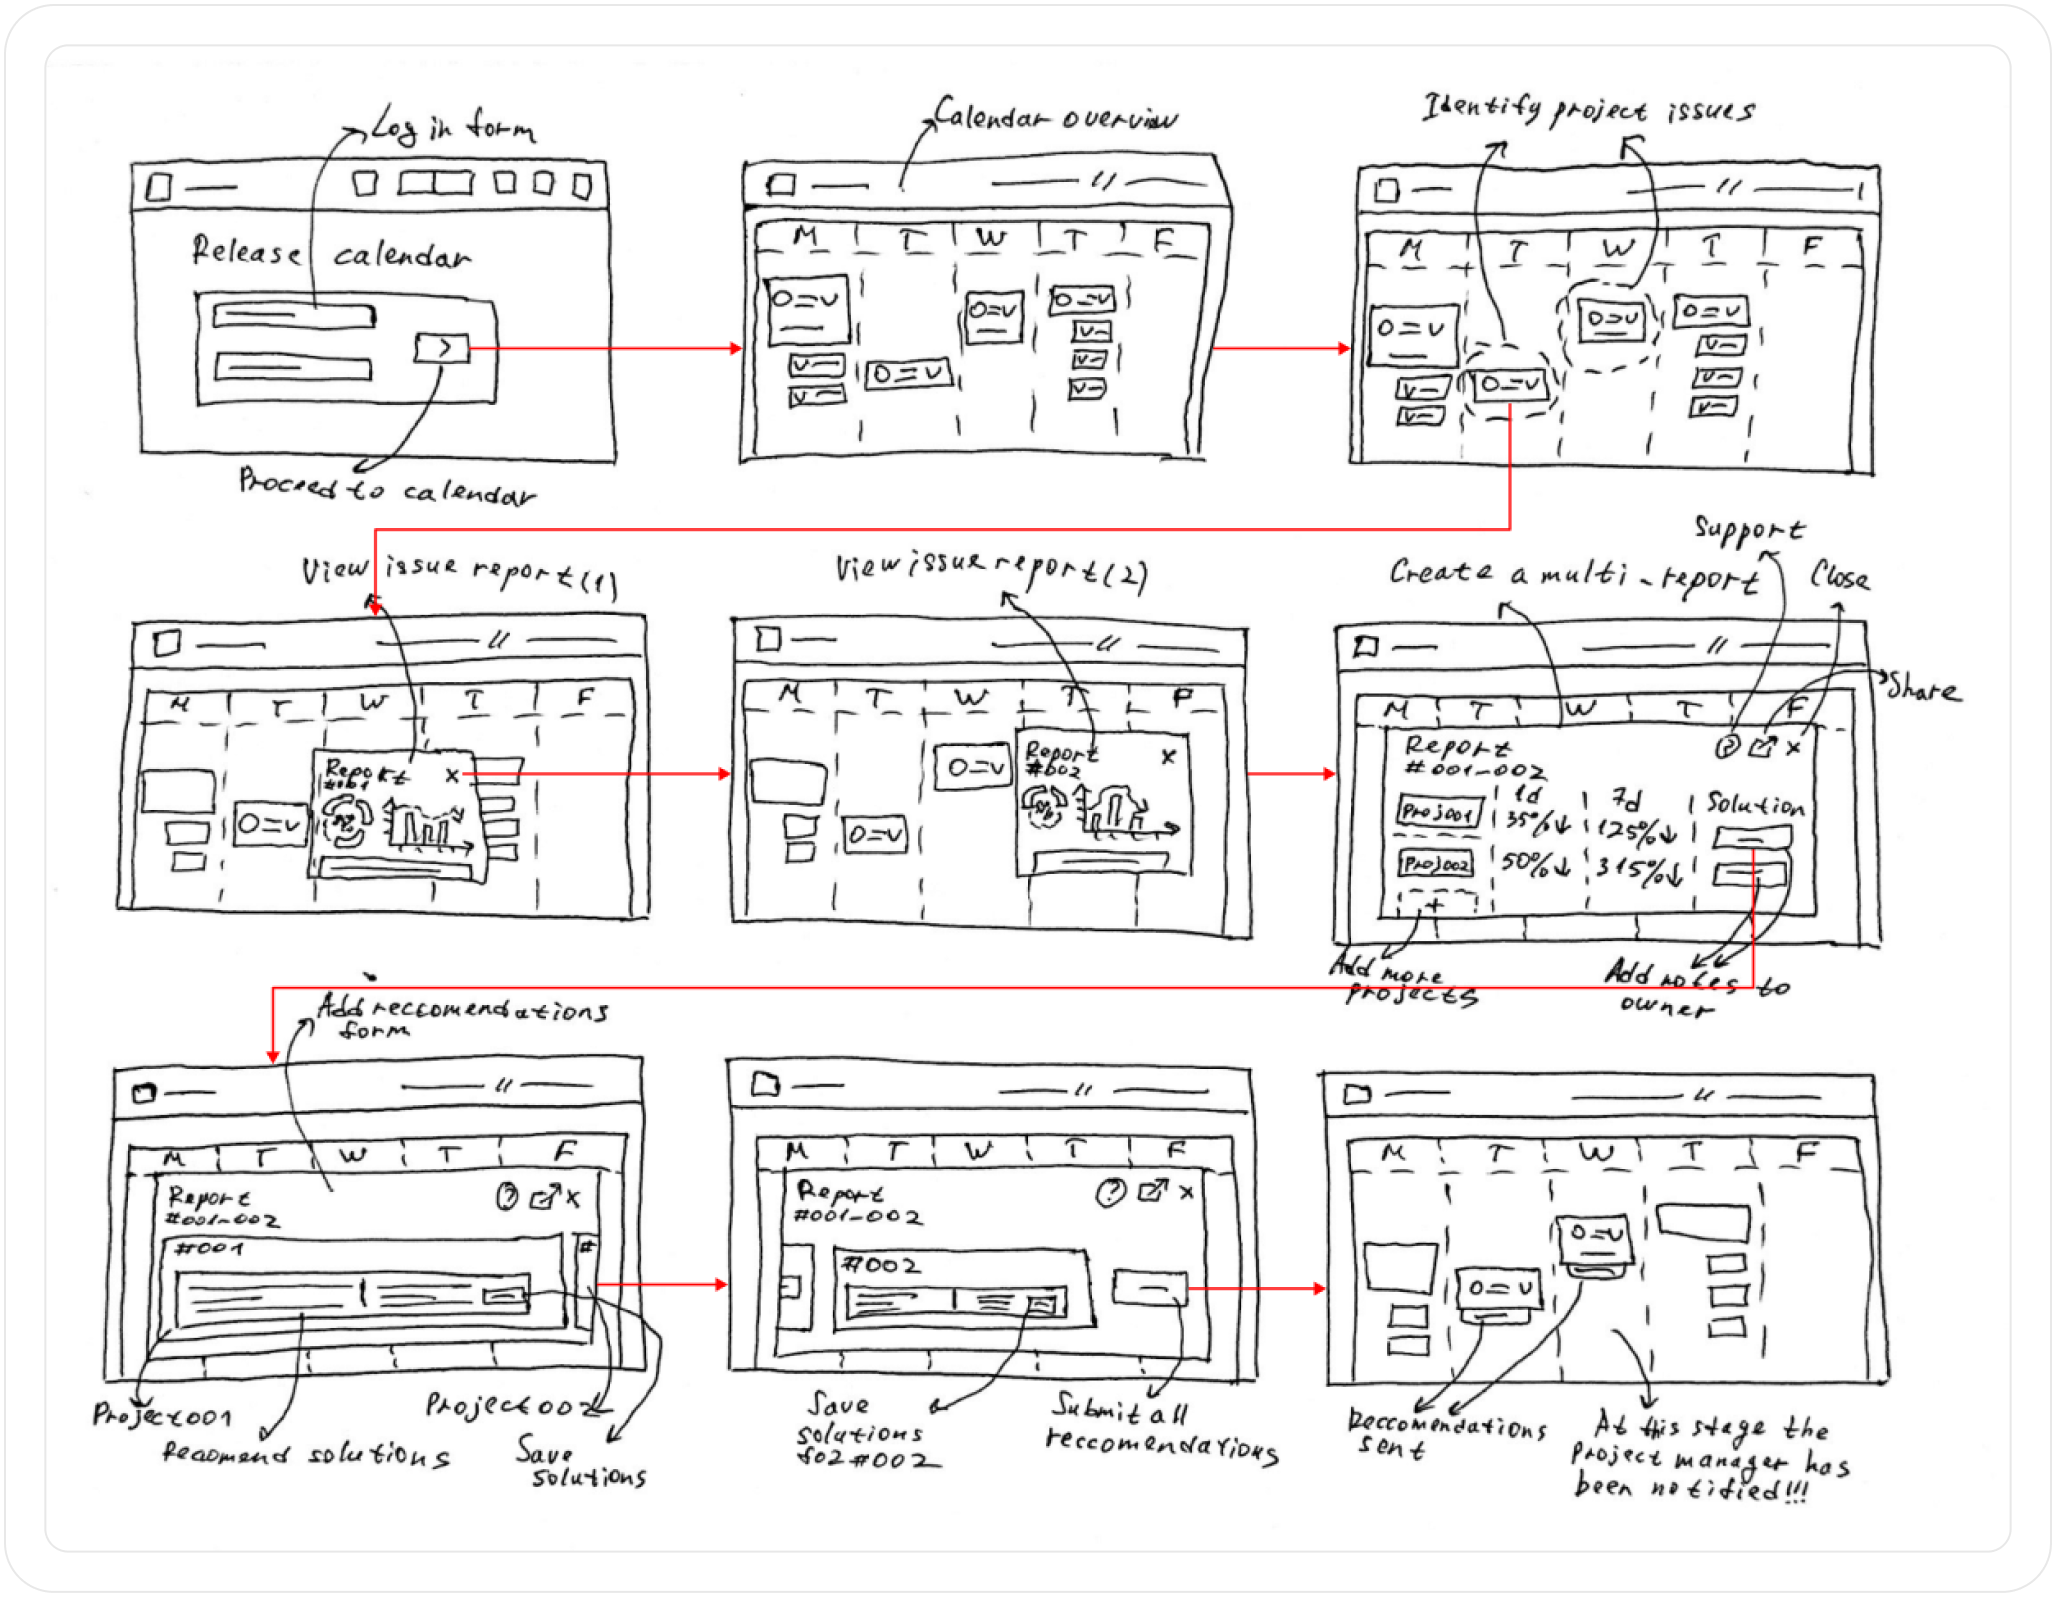 Log in form
Release calendar
Proceed to calendar
Calendar overview
M T W T F
Identify project issues
M T W T F
View issue report (1)
M T W T F
Report x
#001
View issue report (2)
M T W T F
Report x
#002
Support
Create a multi-report
Close
Share
M T W T F
Report ? x
#001-002
1d 7d Solution
Proj001 35%↓ 125%↓
Proj002 50%↓ 315%↓
+
Add more
projects
Add notes to
owner
Add reccomendations
form
M T W T F
Report ? x
#001-002
#001 #
Project 001
Recomend solutions
Project 002
Save
solutions
M T W T F
Report ? x
#001-002
#002
Save
solutions
for #002
Submit all
reccomendations
M T W T F
Reccomendations
sent
At this stage the
project manager has
been notified!!!